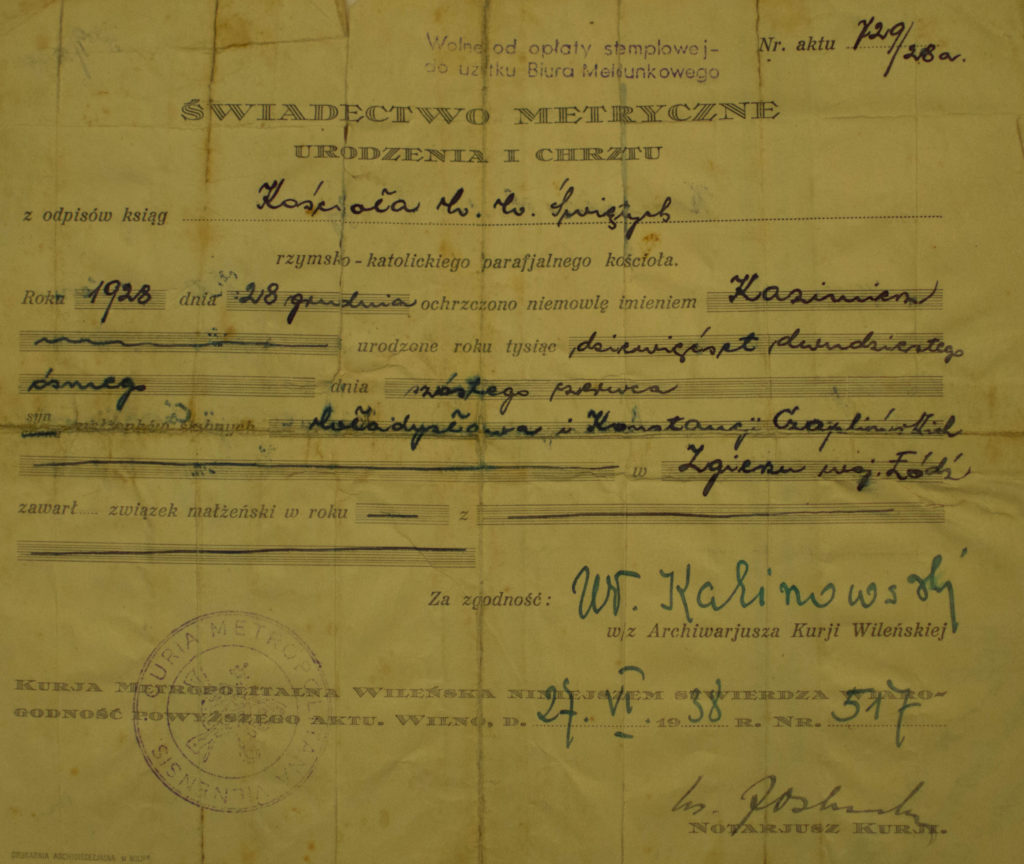 Wolne od opłaty stemplowej-
do użytku Biura Meldunkowego
Nr. aktu 729/28a.
ŚWIADECTWO METRYCZNE
URODZENIA I CHRZTU
z odpisów ksiąg Kościoła W. W. Świętych
rzymsko-katolickiego parafjalnego kościoła.
Roku 1928 dnia 28 grudnia ochrzczono niemowlę imieniem Kazimierz
urodzone roku tysiąc dziewięćset dwudziestego
ósmego dnia szóstego czerwca
syn małżonków ślubnych Władysława i Konstancji Czaplińskich
w Zgierzu woj. Łódź
zawarł..... związek małżeński w roku — z
Za zgodność: Wł. Kalinowski
w/z Archiwarjusza Kurji Wileńskiej
KURJA METROPOLITALNA WILEŃSKA NINIEJSZEM STWIERDZA WIARO-
GODNOŚĆ POWYŻSZEGO AKTU. WILNO, D. 27. VI. 1938 R. NR. 517
CURIA METROPOLITANA VILNENSIS
NOTARJUSZ KURJI.